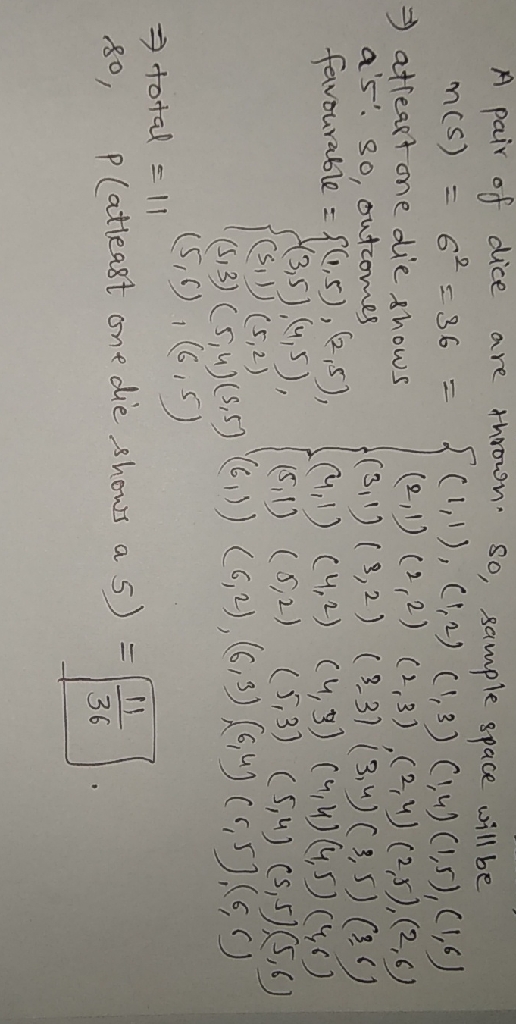 A pair of dice are thrown. So, sample space will be
n(S) = 6² = 36 = { (1,1), (1,2) (1,3) (1,4) (1,5), (1,6)
(2,1) (2,2) (2,3), (2,4) (2,5), (2,6)
(3,1) (3,2) (3,3) (3,4) (3,5) (3,6)
(4,1) (4,2) (4,3) (4,4) (4,5) (4,6)
(5,1) (5,2) (5,3) (5,4) (5,5) (5,6)
(6,1) (6,2), (6,3) (6,4) (6,5), (6,6)
⇒ atleast one die shows
a '5'. So, outcomes
favourable = { (1,5), (2,5),
(3,5), (4,5),
(5,1) (5,2)
(5,3) (5,4) (5,5)
(5,6), (6,5)
⇒ total = 11
so, P(atleast one die shows a 5) = 11/36.